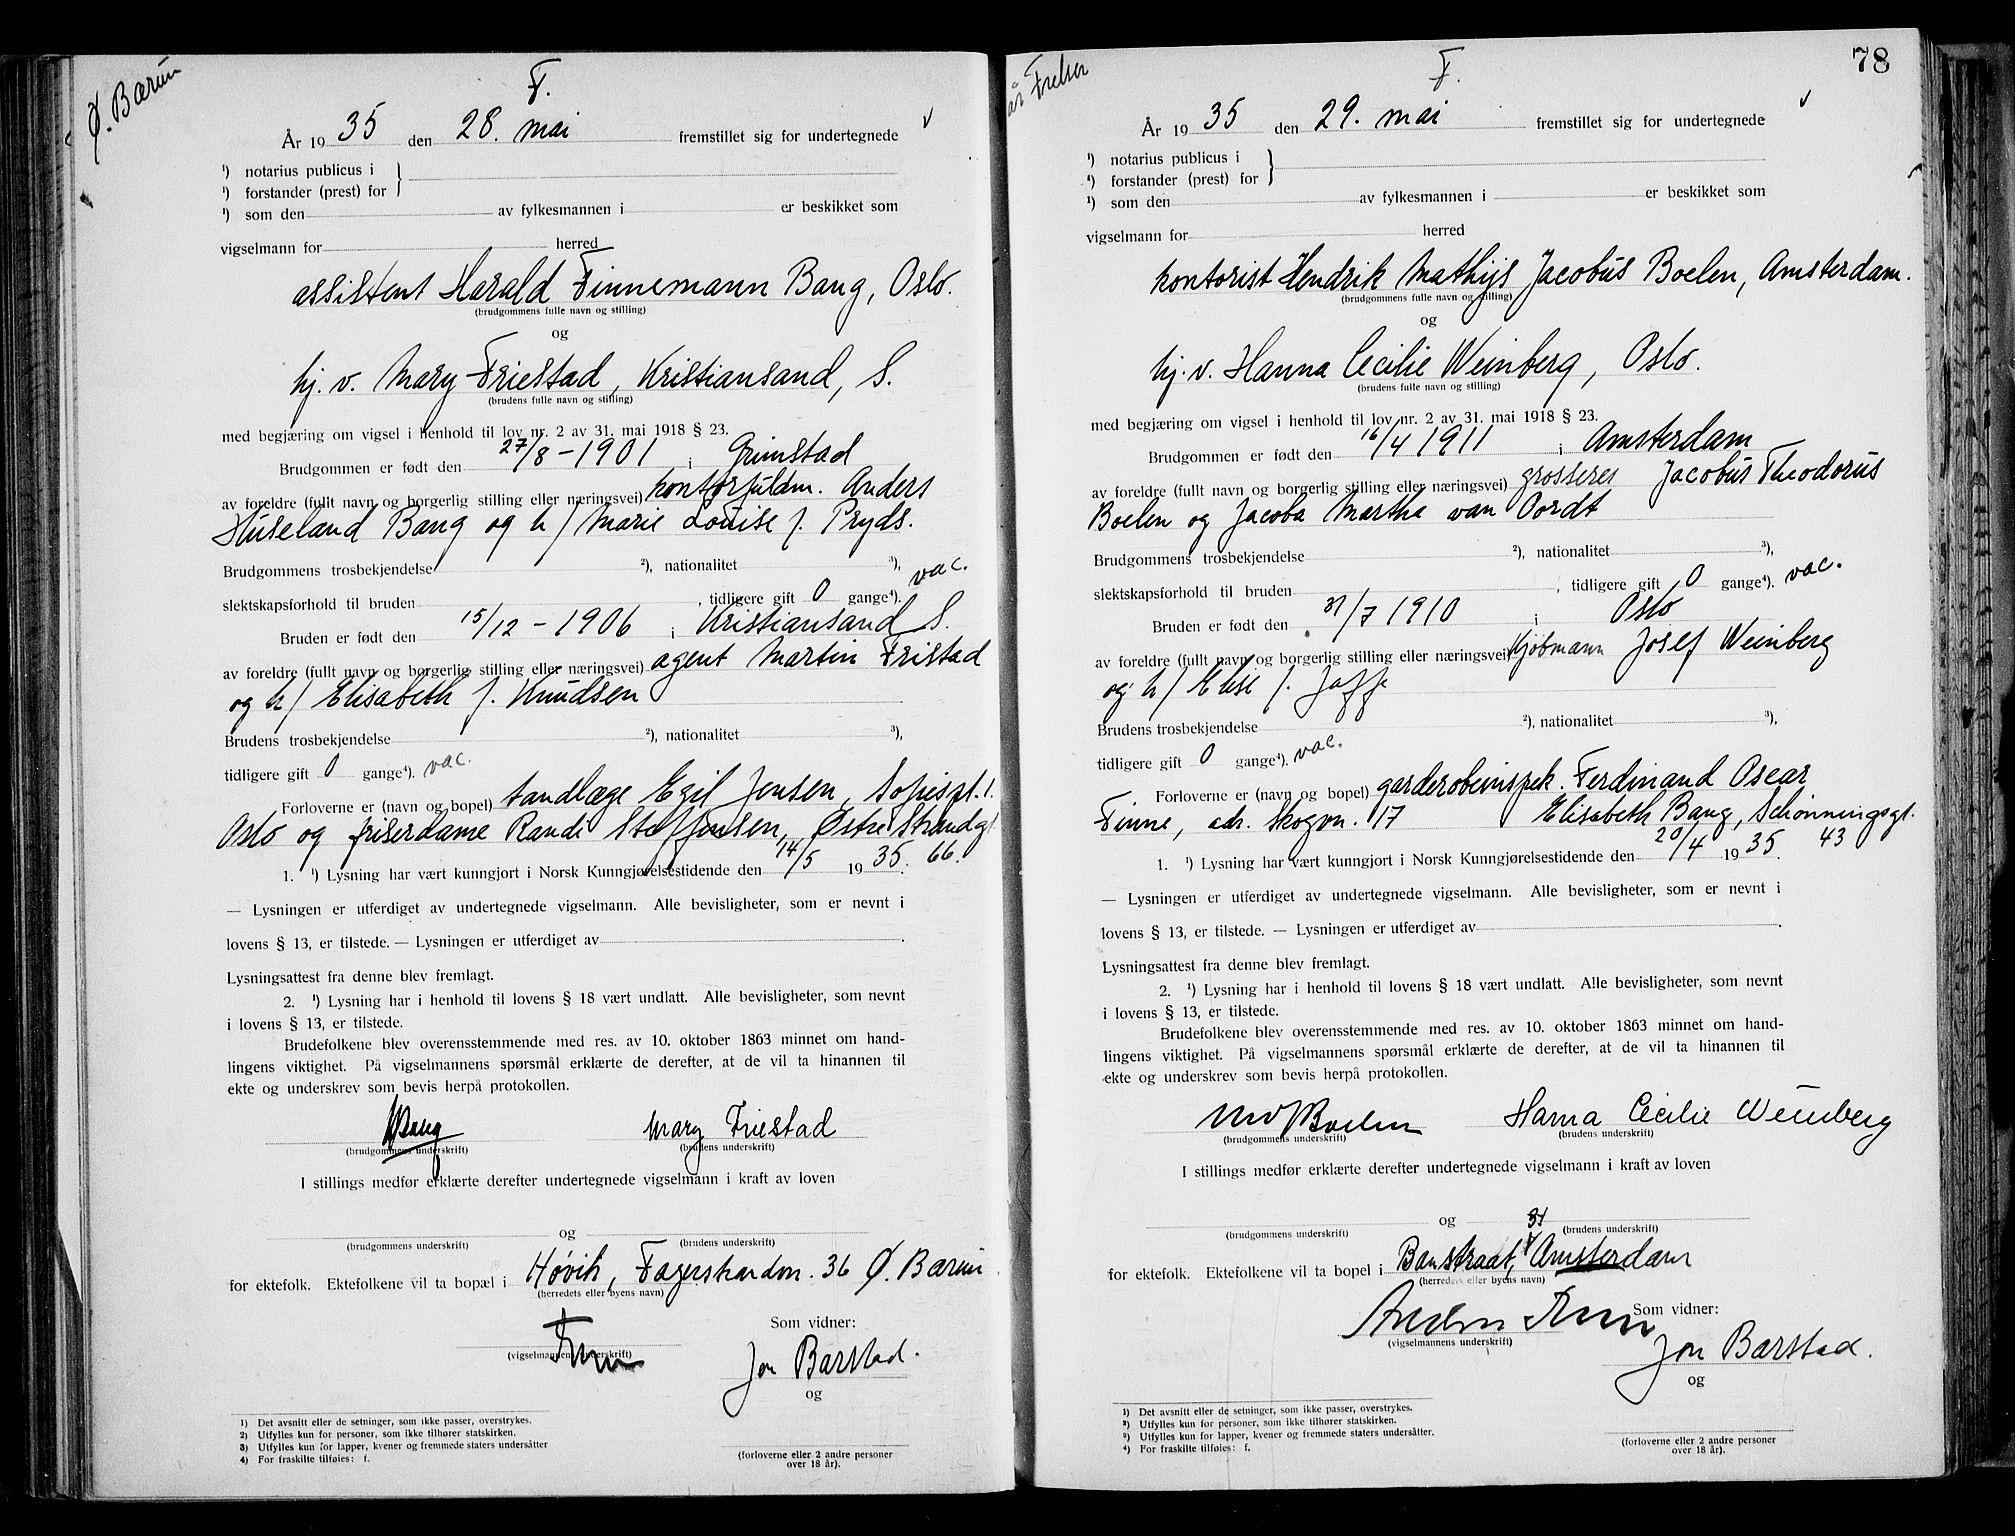 Ø. Bærum
F.
År 1935 den 28. mai fremstillet sig for undertegnede
¹) notarius publicus i
¹) forstander (prest) for
¹) som den av fylkesmannen i er beskikket som
vigselmann for herred
assistent Harald Finnemann Bang, Oslo.
(brudgommens fulle navn og stilling)
og
hj. v. Mary Friestad, Kristiansand, S.
(brudens fulle navn og stilling)
med begjæring om vigsel i henhold til lov nr. 2 av 31. mai 1918 § 23.
Brudgommen er født den 27/8 - 1901 i Grimstad
av foreldre (fullt navn og borgerlig stilling eller næringsvei) kontorfuldm. Anders
Huseland Bang og h/ Marie Louise f. Pryds.
Brudgommens trosbekjendelse ²), nationalitet ³),
slektskapsforhold til bruden , tidligere gift 0 gange⁴). vac.
Bruden er født den 15/12 - 1906 i Kristiansand S.
av foreldre (fullt navn og borgerlig stilling eller næringsvei) agent Martin Fristad
og h/ Elisabeth f. Knudsen
Brudens trosbekjendelse ²), nationalitet ³),
tidligere gift 0 gange⁴). vac.
Forloverne er (navn og bopel) tandlæge Egil Jensen, Sofiespl. 1.
Oslo og friserdame Randi Steffensen, Østre Strandgt.
66.
1. ¹) Lysning har vært kunngjort i Norsk Kunngjørelsestidende den 14/5 1935.
— Lysningen er utferdiget av undertegnede vigselmann. Alle bevisligheter, som er nevnt i
lovens § 13, er tilstede. — Lysningen er utferdiget av .
Lysningsattest fra denne blev fremlagt.
2. ¹) Lysning har i henhold til lovens § 18 vært undlatt. Alle bevisligheter, som nevnt
i lovens § 13, er tilstede.
Brudefolkene blev overensstemmende med res. av 10. oktober 1863 minnet om hand-
lingens viktighet. På vigselmannens spørsmål erklærte de derefter, at de vil ta hinannen til
ekte og underskrev som bevis herpå protokollen.
HBang Mary Friestad
(brudgommens underskrift) (brudens underskrift)
I stillings medfør erklærte derefter undertegnede vigselmann i kraft av loven
og
(brudgommens underskrift) (brudens underskrift)
for ektefolk. Ektefolkene vil ta bopæl i Høvik, Fagerstrandvn. 36 Ø. Bærum
(herredets eller byens navn)
Som vidner:
(vigselmannens underskrift) Jon Barstad.
og
1) Det avsnitt eller de setninger, som ikke passer, overstrykes.
2) Utfylles kun for personer, som ikke tilhører statskirken.
3) Utfylles kun for lapper, kvener og fremmede staters undersåtter
4) For fraskilte tilføies: f.
(forloverne eller 2 andre personer
over 18 år).
78
Frelser
F.
År 1935 den 29. mai fremstillet sig for undertegnede
¹) notarius publicus i
¹) forstander (prest) for
¹) som den av fylkesmannen i er beskikket som
vigselmann for herred
kontorist Hendrik Mathijs Jacobus Boelen, Amsterdam.
(brudgommens fulle navn og stilling)
og
hj. v. Hanna Cecilie Weinberg, Oslo.
(brudens fulle navn og stilling)
med begjæring om vigsel i henhold til lov nr. 2 av 31. mai 1918 § 23.
Brudgommen er født den 16/4 1911 i Amsterdam
av foreldre (fullt navn og borgerlig stilling eller næringsvei) grosseres Jacobus Theodorus
Boelen og Jacoba Martha van Oordt
Brudgommens trosbekjendelse ²), nationalitet ³),
slektskapsforhold til bruden , tidligere gift 0 gange⁴). vac.
Bruden er født den 31/7 1910 i Oslo
av foreldre (fullt navn og borgerlig stilling eller næringsvei) kjøbmann Josef Weinberg
og h/ Elise f. Jaffe
Brudens trosbekjendelse ²), nationalitet ³),
tidligere gift 0 gange⁴). vac.
Forloverne er (navn og bopel) garderobeinspek. Ferdinand Oscar
Finne, adr. Skogvn. 17 Elisabeth Bang, Schønningsgt.
43
1. ¹) Lysning har vært kunngjort i Norsk Kunngjørelsestidende den 20/4 1935.
— Lysningen er utferdiget av undertegnede vigselmann. Alle bevisligheter, som er nevnt i
lovens § 13, er tilstede. — Lysningen er utferdiget av .
Lysningsattest fra denne blev fremlagt.
2. ¹) Lysning har i henhold til lovens § 18 vært undlatt. Alle bevisligheter, som nevnt
i lovens § 13, er tilstede.
Brudefolkene blev overensstemmende med res. av 10. oktober 1863 minnet om hand-
lingens viktighet. På vigselmannens spørsmål erklærte de derefter, at de vil ta hinannen til
ekte og underskrev som bevis herpå protokollen.
Boelen Hanna Cecilie Weinberg
(brudgommens underskrift) (brudens underskrift)
I stillings medfør erklærte derefter undertegnede vigselmann i kraft av loven
og
(brudgommens underskrift) (brudens underskrift)
31
for ektefolk. Ektefolkene vil ta bopel i Banstraat, Amsterdam
(herredets eller byens navn)
Som vidner:
(vigselmannens underskrift) Jon Barstad.
og
1) Det avsnitt eller de setninger, som ikke passer, overstrykes.
2) Utfylles kun for personer, som ikke tilhører statskirken.
3) Utfylles kun for lapper, kvener og fremmede staters undersåtter.
4) For fraskilte tilføies: f.
(forloverne eller 2 andre personer
over 18 år).